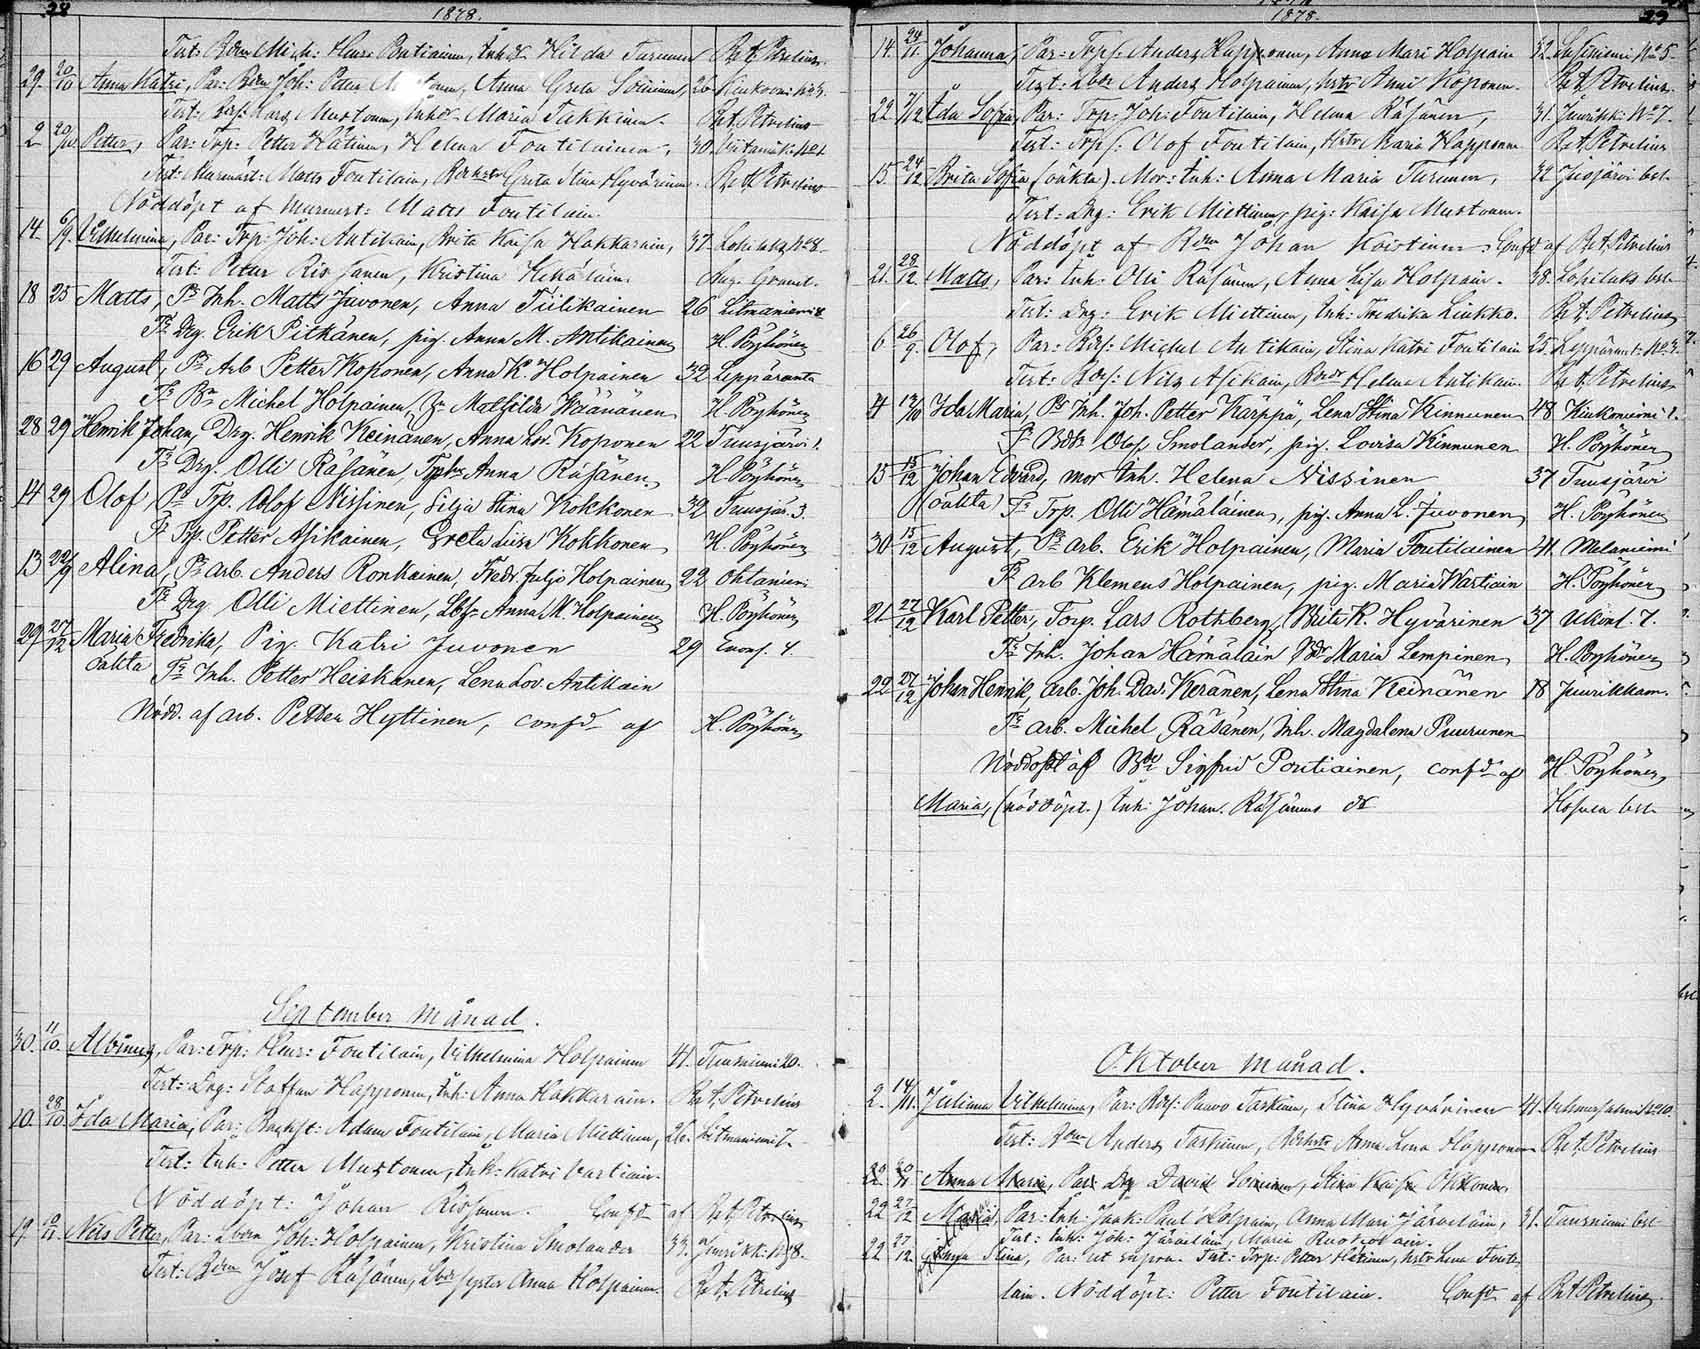 28
1878.
Test: Bdrn Mich: Henr: Putiainen, Inh dr Hilda Turunen
Rot. Petrelius.
29. 20/10 Anna Katri, Par: Bdrn Joh: Petter Anna Greta Soininen, 26. Kinkoni No 3.
Test: Lars Mustonen, Inh dr Maria Takkinen. Rot. Petrelius
2 20/10 Petter, Par: Trp: Petter Hätinen, Helena Foutilainen, 30.
Test: Murmäst: Matts Foutilain, Greta Stina Hyvärinen. Rot. Petrelius
Nöddöpt af murmest: Matts Foutilain.
14. 6/9. Vilhelmina, Par: Trp: Joh: Antikain, Brita Kaisa Hakkarain, 37. No 8.
Test: Petter Kristina
18 25 Matts, Pr Inh. Matts Juvonen, Anna Tiilikainen 26 Litmaniemi 8
Tr Drg. Erik Pitkänen, pig. Anna M. Antikainen H. Pöyhönen
16 29 August, Pr Arb Petter Koponen, Anna K. Holpainen 32 Leppäranta
Tr Bn Michel Holpainen, Mathilda Wäänänen H. Pöyhönen
28 29 Henrik Johan, Drg. Henrik Keinänen, Anna Lov. Koponen 22 Tuusjärvi 1.
Tr Drg. Olli Räsänen, Anna Räsänen. H. Pöyhönen
14 29 Olof, Pr Trp. Olof Nissinen, Silja Stina Kokkonen 32 Tuusjär. 3.
Tr Trp. Petter Asikainen, Greta Luisa Kokkonen H. Pöyhönen
13 22/9 Alina, Pr arb. Anders Ronkainen, Fredr. Julja Holpainen 22 Ohtaniemi
Tr Drg Olli Miettinen, Anna M. Holpainen H. Pöyhönen
29 27/12 Maria Fredrika, Pig. Katri Juvonen 29 Enons. 4.
oäkta Tr Inh. Petter Heiskanen, Lena Lov. Antikain
Nödd. af arb. Petter Hyttinen, confd af H. Pöyhönen
September månad.
30. 11/10. Albinus, Par: Trp: Henr: Foutilain, Vilhelmina Holpainen 41. Tuusniemi 20.
Test: Drg: Staffan Happonen, Inh: Anna Hakkarain. Rot. Petrelius
10. 28/10. Ida Maria, Par: Adam Foutilain, Maria Miettinen, 26. Litmaniemi 7.
Test: Inh: Petter Mustonen, Inh: Katri Vartiain.
Nöddöpt: Johan Rissanen. Confd af Rot. Petrelius
19. Nils Petter, Par: Lbdrn Joh: Holpainen, Kristina Smolander 33. Juurikk: No 8.
Test: Bdrn Josef Räsänen, syster Anna Holpainen. Rot. Petrelius
1878.
29
14. 24/11. Johanna, Par: Trpf: Anders Happonen, Anna Mari Holpain 32. No 5.
Test: Lbdr Anders Holpainen, hstr Anni Koponen. Rot. Petrelius
22 7/12 Ida Sofia, Par: Trp: Joh: Foutilain, Helena Räsänen, 31. Juurikk: No 7.
Test: Trpf: Olof Foutilain, Hstr Maria Happonen Rot. Petrelius
15 24/12 Brita Sofia (oäkta). Mor: Inh: Anna Maria Turunen, 32 Juojärvi bst.
Test: Drg: Erik Miettinen, pig: Kaisa Mustonen.
Nöddöpt af Bdrn Johan Koistinen. Confd af Rot. Petrelius
21. 28/12. Matts, Par: Inh: Olli Räsänen, Anna Lisa Holpain. 38. bst.
Test: Drg: Erik Miettinen, Inh: Fredrika Liukko. Rot. Petrelius
6 26/9. Olof, Par: Bdrf: Michel Antikain, Stina Katri Foutilain 25. Leppärant: No 3.
Test: Bdrf: Nils Asikain, Bndr Helena Antikain. Rot. Petrelius
4 12/10 Ida Maria, Pr Inh. Joh. Petter Kärppä, Lena Stina Kinnunen 48. Kiukoniemi 1.
Tr Olof Smolander, pig. Lovisa Kinnunen H. Pöyhönen
15 15/12 Johan Edvard, mor Inh. Helena Nissinen 37 Tuusjärvi
(oäkta Tr Trp. Olli Hämäläinen, pig. Anna L. Juvonen H. Pöyhönen
30 15/12 August, Pr Arb. Erik Holpainen, Maria Foutilainen 41. Melaniemi
Tr arb Klemens Holpainen, pig. Maria Wartiain H. Pöyhönen
21 27/12 Karl Petter, Torp. Lars Rothberg, Brita K. Hyvärinen 37 Ukonl. 7.
Tr Inh. Johan Hämäläin Maria Lempinen, H. Pöyhönen
22 27/12 Johan Henrik, arb. Joh. Dav. Keränen, Lena Stina Keinänen 18 Juurikkam.
Tr arb. Michel Räsänen, Inh. Magdalena Puurunen
Nöddöpt af Sigfrid Poutiainen, confd af H. Pöyhönen
Maria, (nöddöpt.) Inh: Johan Räsänens dr bst.
Oktober månad.
2. 14/11. Juliana Vilhelmina, Par: Bdrf: Paavo Taskinen, Stina Hyvärinen 41. No 10.
Test: Bdrn Anders Taskinen, Anna Lena Happonen Rot. Petrelius
22. 20/11 Anna Maria, Par: Drg David Soininen, Stina Kaisa Ohkonen.
22 27/12 Maria, Par: Inh: Jaak: Paul Holpain, Anna Mari Järveläin, 31. Tuusniemi bst
Test: Inh: Joh: Järveläin, Maria
22 27/12. Stina, Par: ut supra. Test: Torp: Petter Hätinen, hstr Lena Fouti-
lain. Nöddöpt: Petter Foutilain. Confd af Rot Petrelius